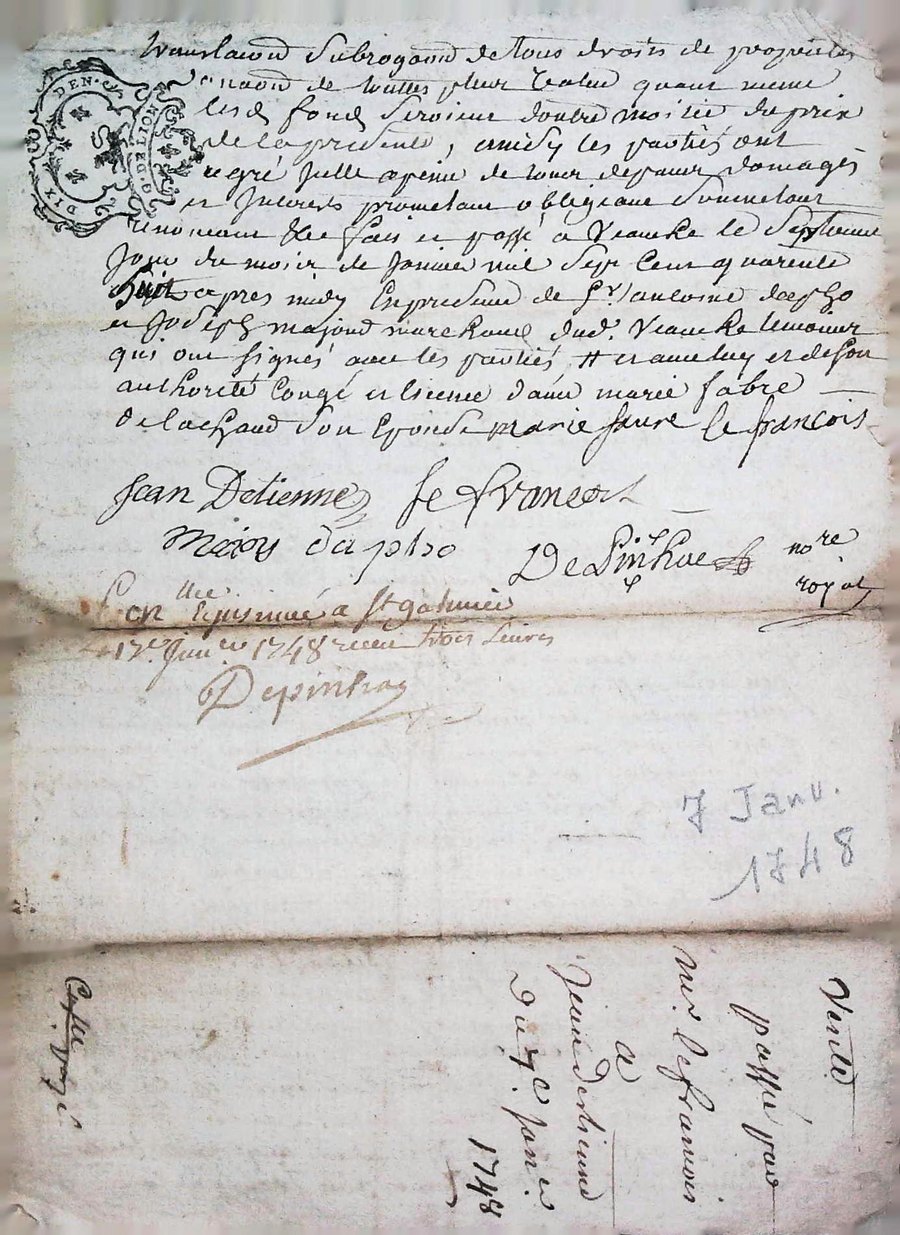 translaond subrogeand de tous droits de proprietes
de touttes pleur value quant meme
lesd fond seroient doutre moitie du prix
de la presente, ainsy les parties ont
agré jelle a peine de tous depans domages
et Interets promettant obligeant soumettant
renoncant &c fais et passé a Veauche le septieme
jour du mois de Janvier mil sept cent quarente
huit apres midy En presence de Sr. antoine dapzho
et Joseph majond marchand dud. Veauche temoins
qui ont signés avec les parties # et avec luy et de son
authorité congé et licence dame marie fabre
de lachaud son Epouse marie faure le francois
Jean Detienne le francois
dapzho DePinhac nore
royal
Con
a st galmier
le 17e. Janer 1748 receu trois Livres
Depinhac
7 Janv.
1748
Vente
passée par
mr. lefrancois
a
jean detienne
du 7e. janer
1748